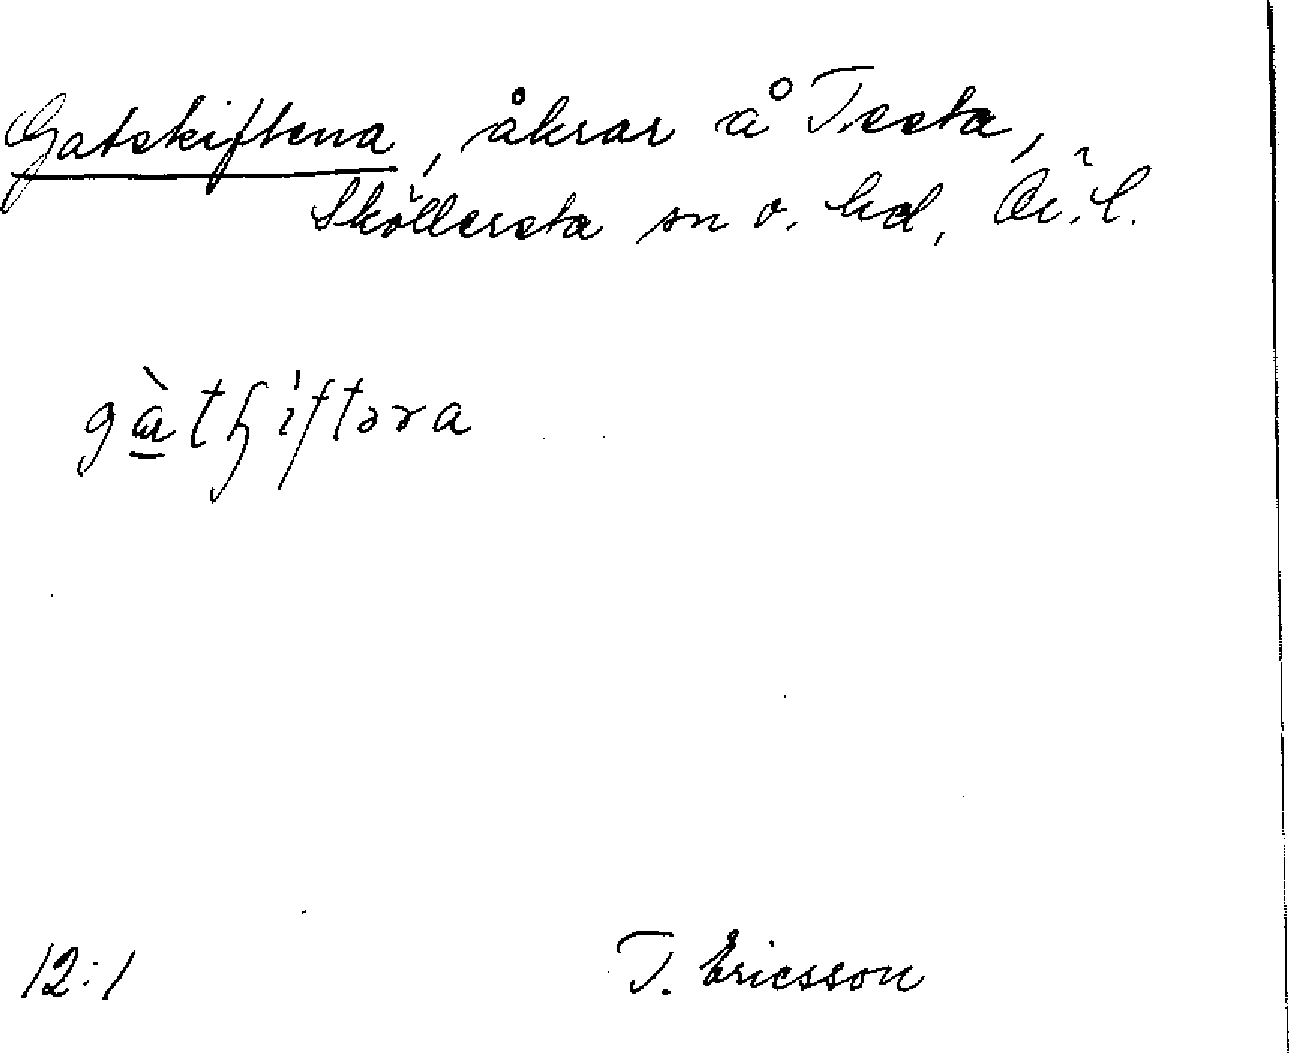 Gatskiftena, åkrar å Testa,
Sköllersta sn o. hd, Ör. l.
gàtʃiftəra
12:1
T. Ericsson